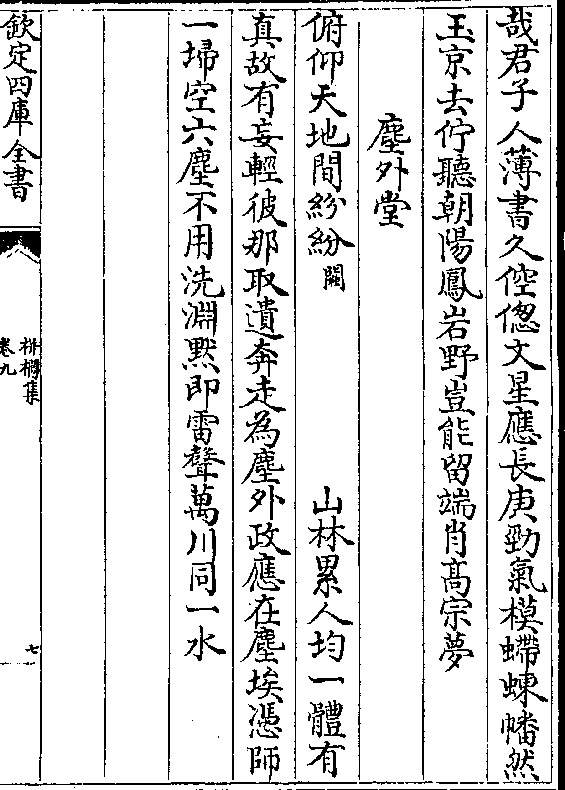 哉君子人薄書久倥偬文星應長庚勁氣模螮蝀幡然
玉京去佇聽朝陽鳳岩野豈能留端肖髙宗夢
塵外堂
俯仰天地間紛紛闕山林累人均一體有
真故有妄輕彼那取遺奔走為塵外政應在塵埃憑師
一埽空六塵不用洗淵黙即雷聲萬川同一水
欽定四庫全書
栟櫚集
卷九
七